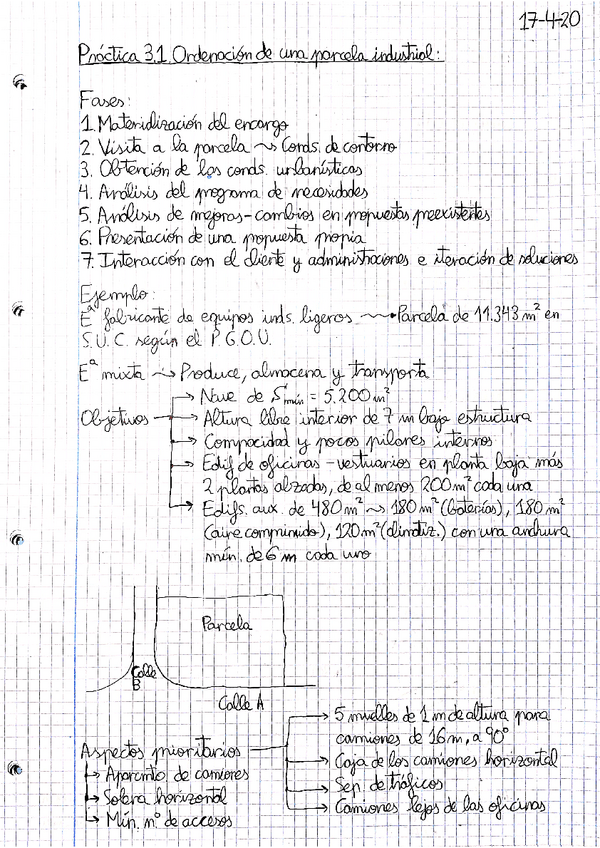 17-4-20
Práctica 3.1. Ordenación de una parcela industrial:
Fases:
1. Materialización del encargo
2. Visita a la parcela ⤳ Conds. de contorno
3. Obtención de las conds. urbanísticas
4. Análisis del programa de necesidades
5. Análisis de mejoras-cambios en propuestas preexistentes
6. Presentación de una propuesta propia
7. Interacción con el cliente y administraciones e iteración de soluciones
Ejemplo:
Eª fabricante de equipos inds. ligeros ⤳ Parcela de 11.343 m² en
S.U.C. según el P.G.O.U.
Eª mixta ⤳ Produce, almacena y transporta
Objetivos → Nave de Smín = 5.200 m²
→ Altura libre interior de 7 m bajo estructura
→ Compacidad y pocos pilares internos
→ Edif de oficinas - vestuarios en planta baja más
2 plantas alzadas, de al menos 200 m² cada una
→ Edifs. aux. de 480 m² ⤳ 180 m² (baterías), 180 m²
(aire comprimido), 120 m² (climatiz.) con una anchura
mín. de 6 m cada uno
Parcela
Calle
B
Calle A
Aspectos prioritarios
→ Aparcmto de camiones
→ Solera horizontal
→ Mín. nº de accesos
→ 5 muelles de 1 m de altura para
camiones de 16 m, a 90°
→ Caja de los camiones horizontal
→ Sep. de tráficos
→ Camiones lejos de las oficinas